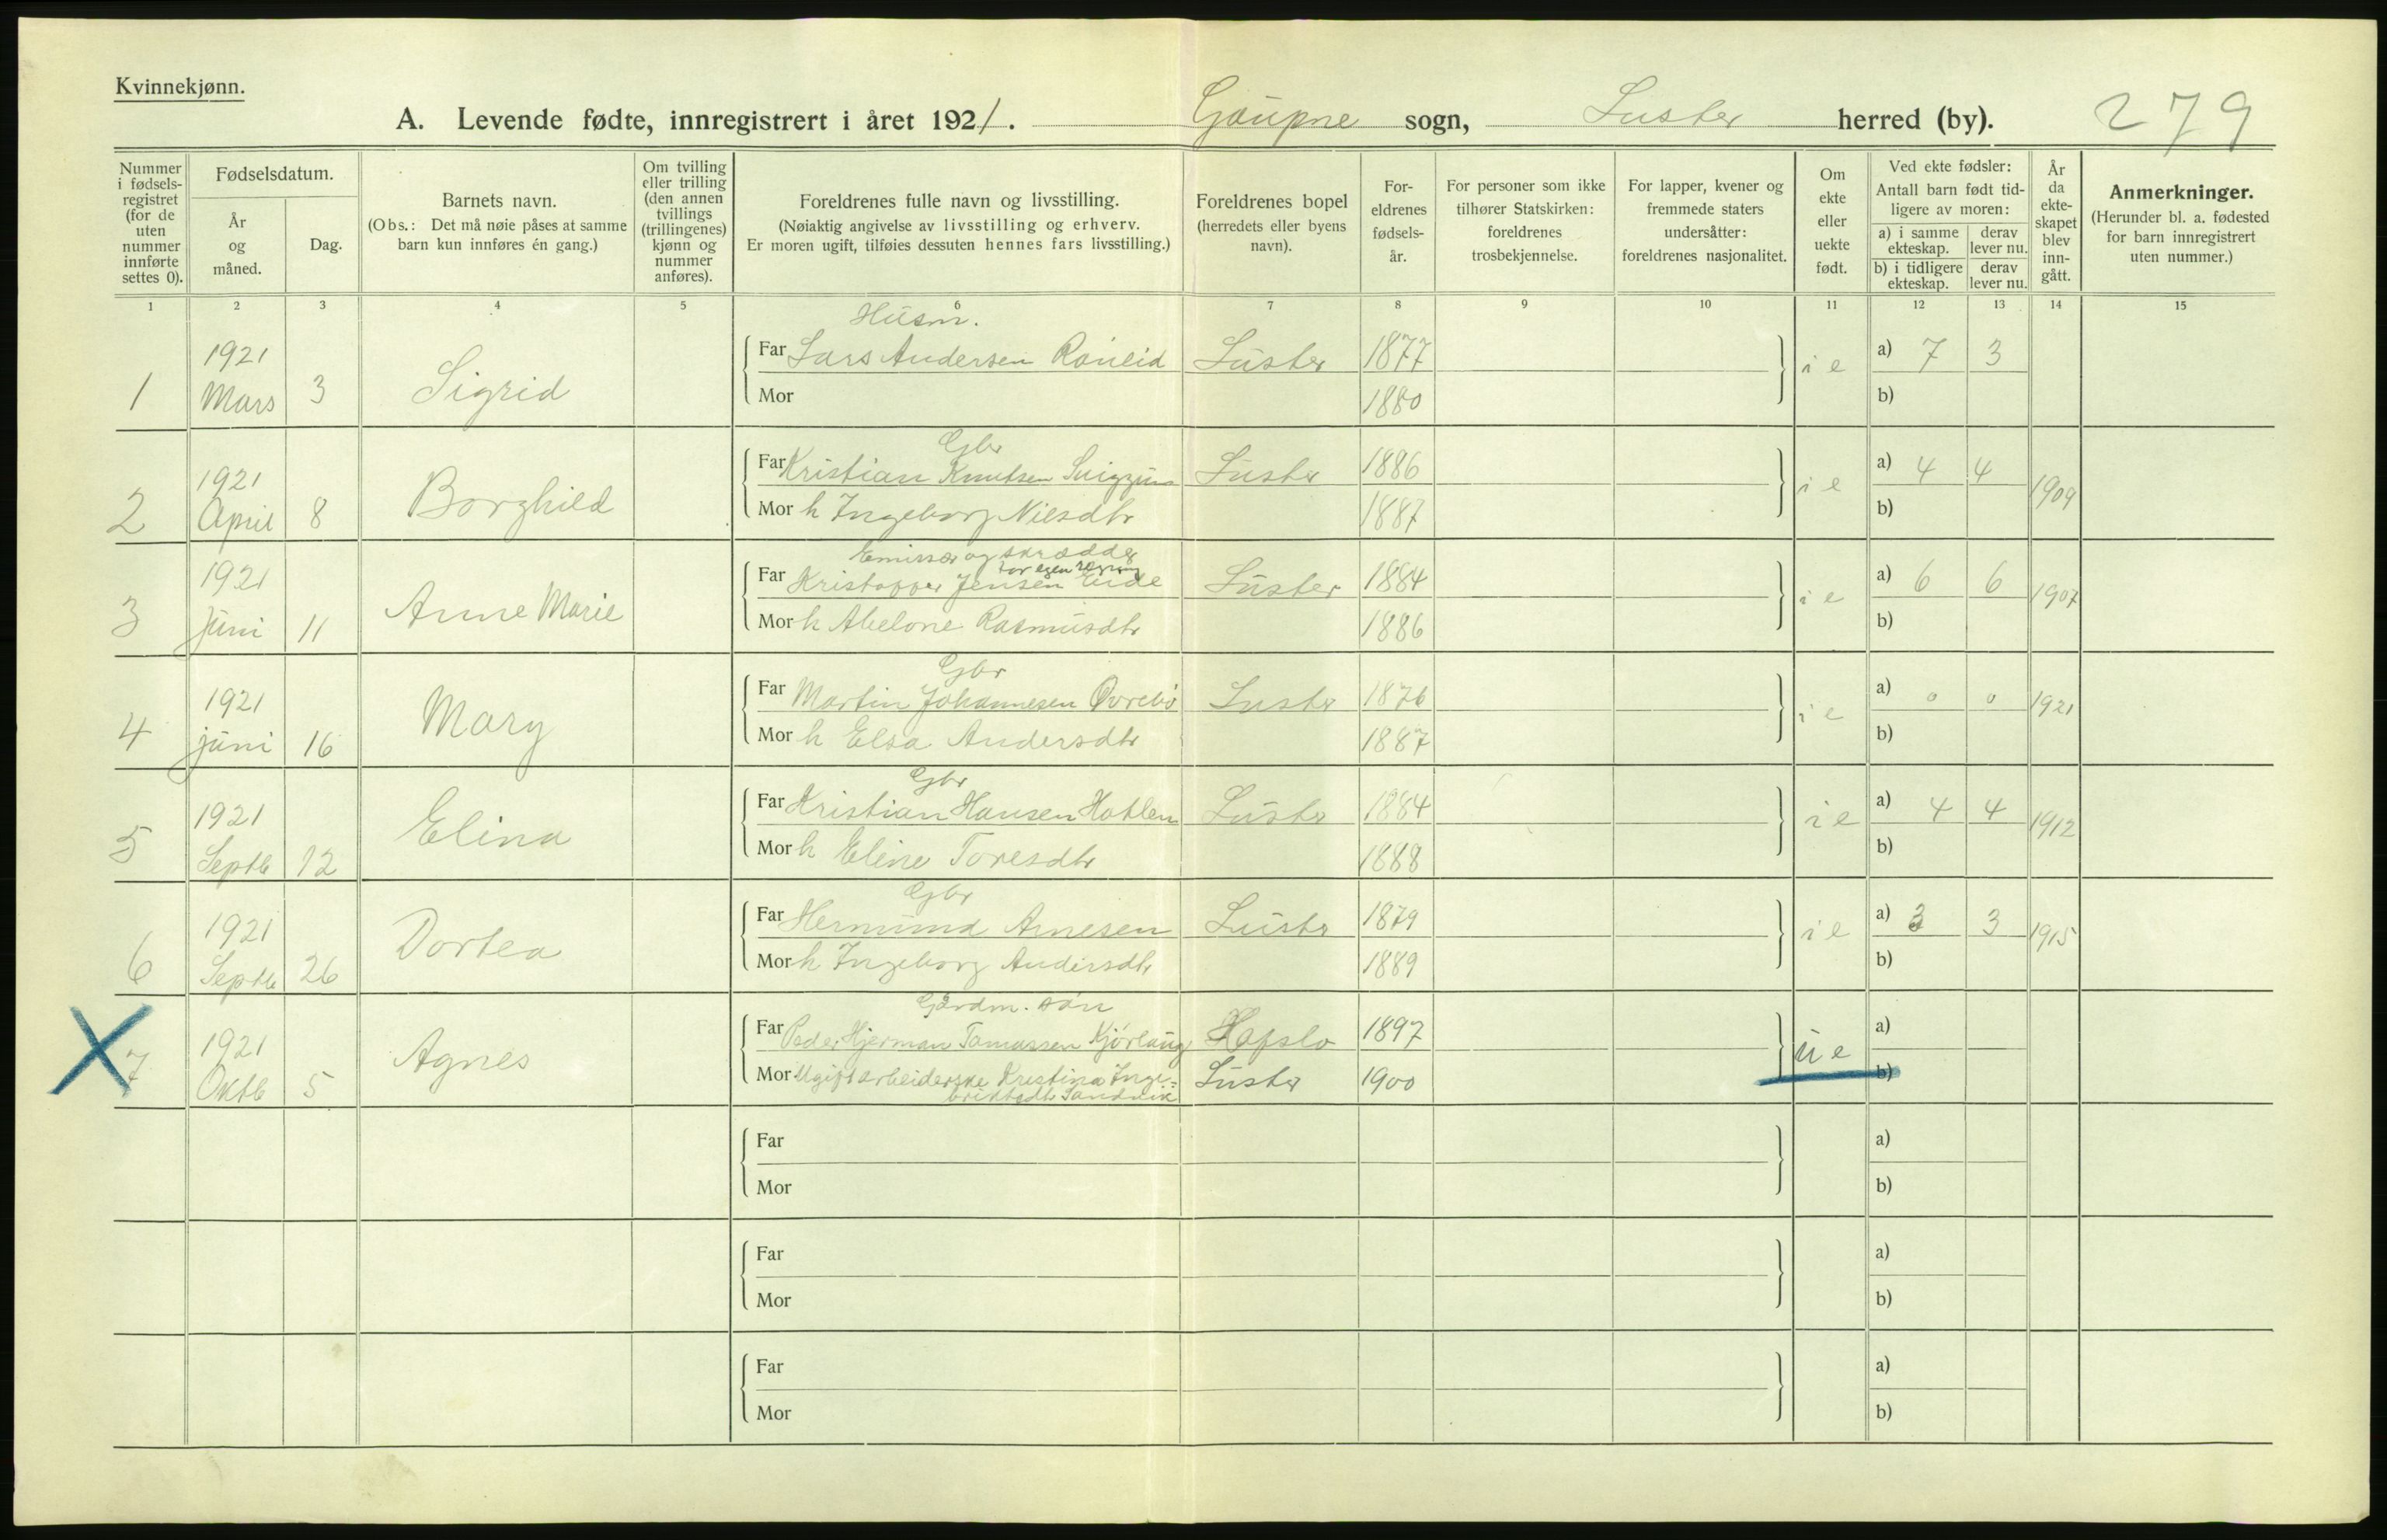 Kvinnekjønn.
A. Levende fødte, innregistrert i året 1921. Gaupne sogn, Luster herred (by). 279
Nummer i fødsels-registret (for de uten nummer innførte settes 0).
Fødselsdatum.
År og måned.
Dag.
Barnets navn.
(Obs.: Det må nøie påses at samme barn kun innføres én gang.)
Om tvilling eller trilling (den annen tvillings (trillingenes) kjønn og nummer anføres).
Foreldrenes fulle navn og livsstilling.
(Nøiaktig angivelse av livsstilling og erhverv.
Er moren ugift, tilføies dessuten hennes fars livsstilling.)
Foreldrenes bopel
(herredets eller byens navn).
For-eldrenes fødsels-år.
For personer som ikke tilhører Statskirken: foreldrenes trosbekjennelse.
For lapper, kvener og fremmede staters undersåtter: foreldrenes nasjonalitet.
Om ekte eller uekte født.
Ved ekte fødsler:
Antall barn født tid-ligere av moren:
a) i samme ekteskap. derav lever nu.
b) i tidligere ekteskap. derav lever nu.
År da ekte-skapet blev inn-gått.
Anmerkninger.
(Herunder bl. a. fødested for barn innregistrert uten nummer.)
1 2 3 4 5 6 7 8 9 10 11 12 13 14 15
Husm.
1921 Far Lars Andersen Røneid Luster 1877 i e a) 7 3
1 Mars 3 Sigrid Mor 1880 b)
Gbr
1921 Far Kristian Knutsen Luster 1886 i e a) 4 4 1909
2 April 8 Borghild Mor h Ingeborg Nilsdtr 1887 b)
Emissær og skrædder
for egen regning
1921 Far Kristoffer Jensen Eide Luster 1884 i e a) 6 6 1907
3 Juni 11 Anne Marie Mor h Abelone Rasmusdtr 1886 b)
Gbr
1921 Far Martin Johannesen Øvrebö Luster 1876 i e a) 0 0 1921
4 juni 16 Mary Mor h Elsa Andersdtr 1887 b)
Gbr
1921 Far Kristian Hansen Hatlem Luster 1884 i e a) 4 4 1912
5 Septb 12 Elina Mor h Eline Toresdtr 1888 b)
Gbr
1921 Far Hermund Arnesen Luster 1879 i e a) 3 3 1915
6 Septb 26 Dortea Mor h Ingeborg Andersdtr 1889 b)
Gårdm. sön
1921 Far Peder Hjerman Tomassen Kjörlaug Hafslo 1897 u e a)
X 7 Oktb 5 Agnes Mor Ugift arbeiderske Kristina Inge= Luster 1900 b)
briktsdtr Sandvik
Far a)
Mor b)
Far a)
Mor b)
Far a)
Mor b)